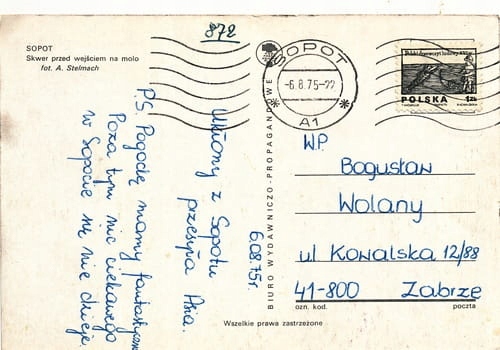 872
SOPOT
Skwer przed wejściem na molo
fot. A. Stelmach
SOPOT
-6.8.75-22
A1
POLSKA 1zł
Ukłony z Sopotu
przesyła Asia.
6.08.75r.
P.S. Pogodę mamy fantastyczną
Poza tym nic ciekawego
w Sopocie się nie dzieje
BIURO WYDAWNICZO-PROPAGANDOWE
WP.
Bogusław
Wolany
ul Kowalska 12/88
41-800 Zabrze
ozn. kod. poczta
Wszelkie prawa zastrzeżone